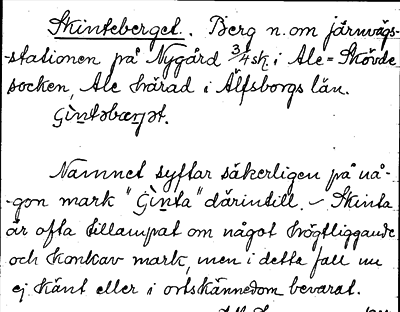 Skinteberget. Berg n. om järnvägs-
-stationen på Nygård 3/4 sk. i Ale-Skövde
socken, Ale härad i Älfsborgs län.
Namnet syftar säkerligen på nå-
-gon mark "Gìnta" därintill. – Skinta
är ofta tillämpat om något högtliggande
och konkav mark, men i detta fall nu
ej känt eller i ortskännedom bevarat.